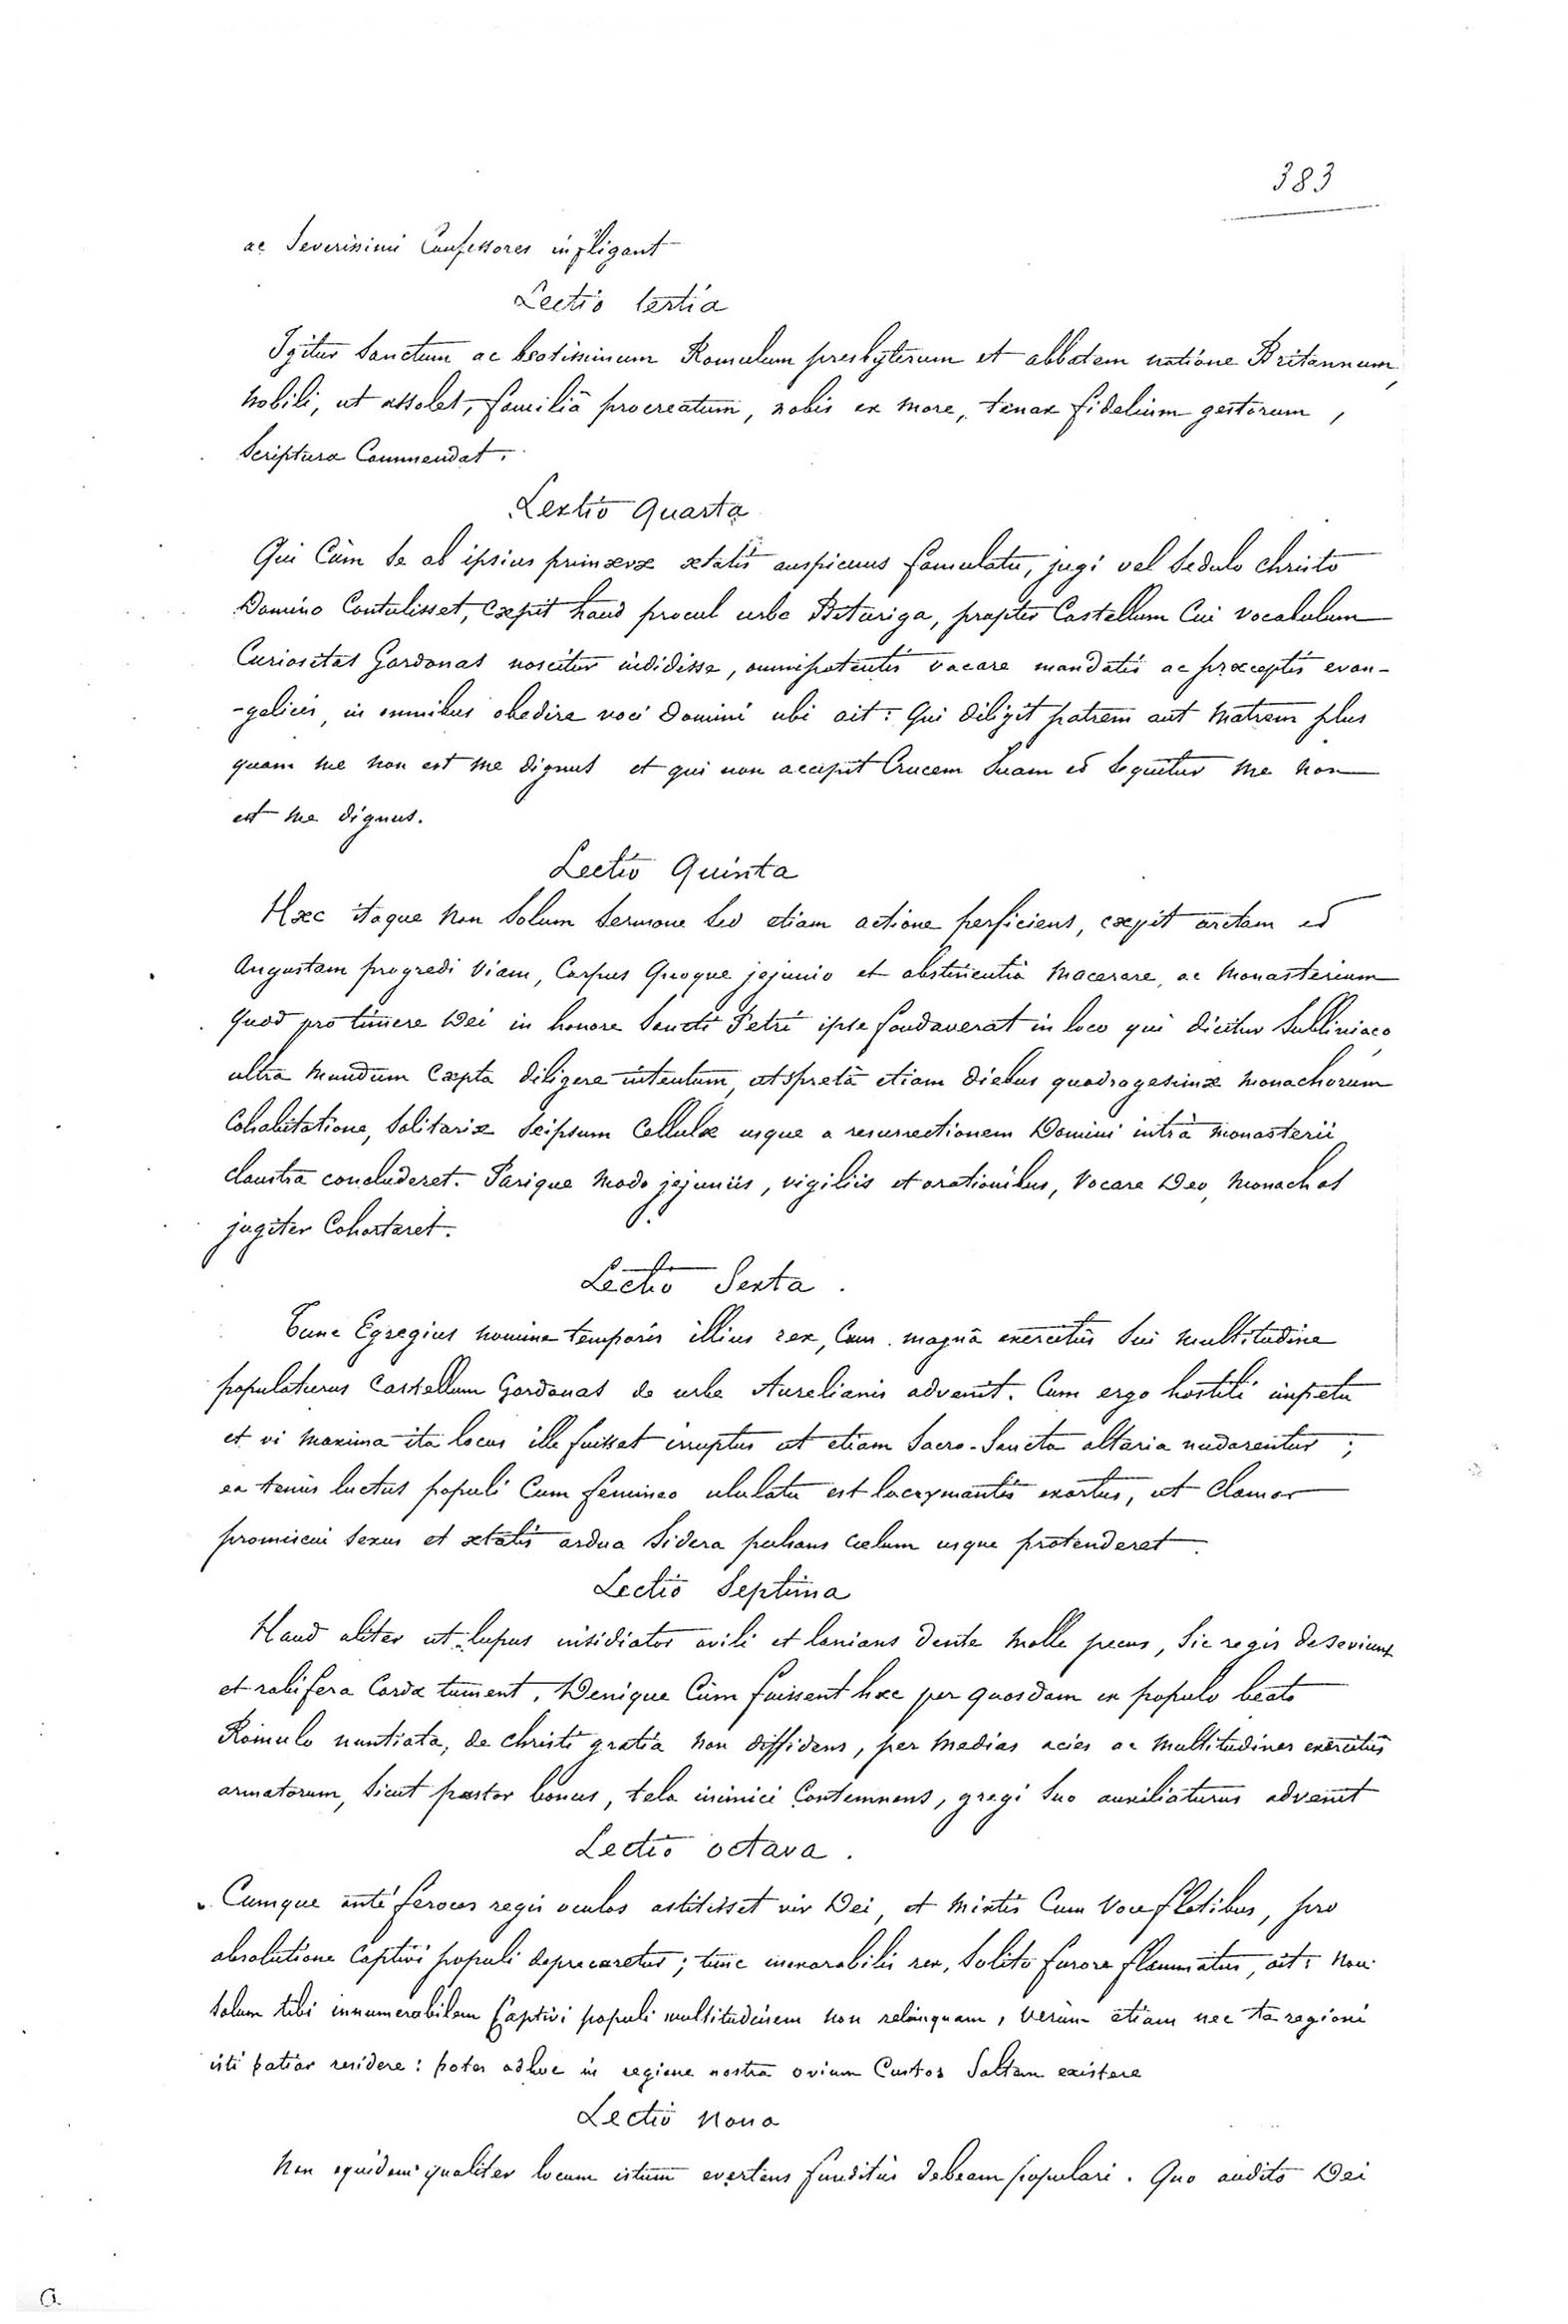 383
ac Severissimi Confessores infligant
Lectio tertia
Igitur Sanctum ac beatissimum Romulum presbyterum et abbatem natione Britannum,
Nobili, ut assolet, familiâ procreatum, nobis ex more, tenax fidelium gestorum,
Scriptura Commendat.
Lectio Quarta
Qui Cùm Se ab ipsius primævæ ætatis auspiciis famulatu, jugi vel Sedulo Christo
Domino Contulisset, Cæpit haud procul urbe Bituriga, propter Castellum Cui vocabulum
Curiositas Gordonas noscitur indidisse, omnipotentis vacare mandatis ac præceptis evan-
-gelicis, in omnibus obedire voci Domini ubi ait: Qui diligit patrem aut Matrem plus
quam me non est me dignus et qui non accipit Crucem Suam ed Sequitur me Non
est me dignus.
Lectio Quinta
Hæc itaque Non Solum Sermone Sed etiam actione perficiens, cæpit arctam ed
Angustam progredi Viam, Corpus Quoque jejunio et abstinentiâ Macerare, ac Monasterium
Quod pro timere Dei in honore Sancti Petri ipse fondaverat in loco qui dicitur Subliniaco,
ultra Mundum Cæpta diligere intentum, ut spretâ etiam diebus quadragesimæ Monachorum
Cohabitatione, Solitariæ Seipsum Cellulæ usque a resurrectionem Domini intrà Monasterii
Claustra concluderet. Parique Modo jejuniis, vigiliis et orationibus, Vocare Deo, Monachos
jugiter Cohortaret.
Lectio Sexta.
Tunc Egregius nomine temporis illius rex, Cum magnâ exercitûs Sui Multitudine
populaturus Castellum Gordonas de urbe Aurelianis advenit. Cum ergo hostili impetu
et vi Maxima ita locus ille fuisset irruptus ut etiam Sacro-Sancta altaria nudarentur;
ea tenùs luctus populi Cum femineo ululatu est lacrymantis exortus, ut Clamor
promiscui Sexus et ætatis ardua Sidera pulsans Cælum usque protenderet.
Lectio Septima
Haud aliter ut lupus insidiator ovili et lanians dente Molle pecus, Sic regis deseviunt
et rabifera Corda tument. Denique Cùm fuissent hæc per quosdam ex populo beato
Romulo nuntiata, de Christi gratia Non diffidens, per Medias acies ac Multitudines exercitûs
armatorum, Sicut pastor bonus, tela inimici Contemnens, gregi Suo auxiliaturus advenit
Lectio octava.
Cumque antè feroces regis oculos astitisset vir Dei, et Mixtis Cum Voce fletibus, pro
absolutione Captivi populi deprecaretur; tunc inexorabilis rex, Solito furore flammatus, ait: Non
Solum tibi innumerabilem Captivi populi multitudinem non relinquam, Verùm etiam nec te regioni
isti patiar residere: potes adhuc in regione nostra ovium Custos Saltem existere
Lectio Nona
Non equidem qualiter locum istum evertens funditùs debeam populari. Quo audito Dei
a